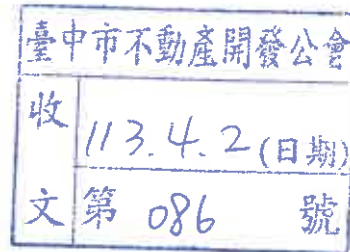 臺中市不動產開發公會
收文
113.4.2(日期)
第 086 號